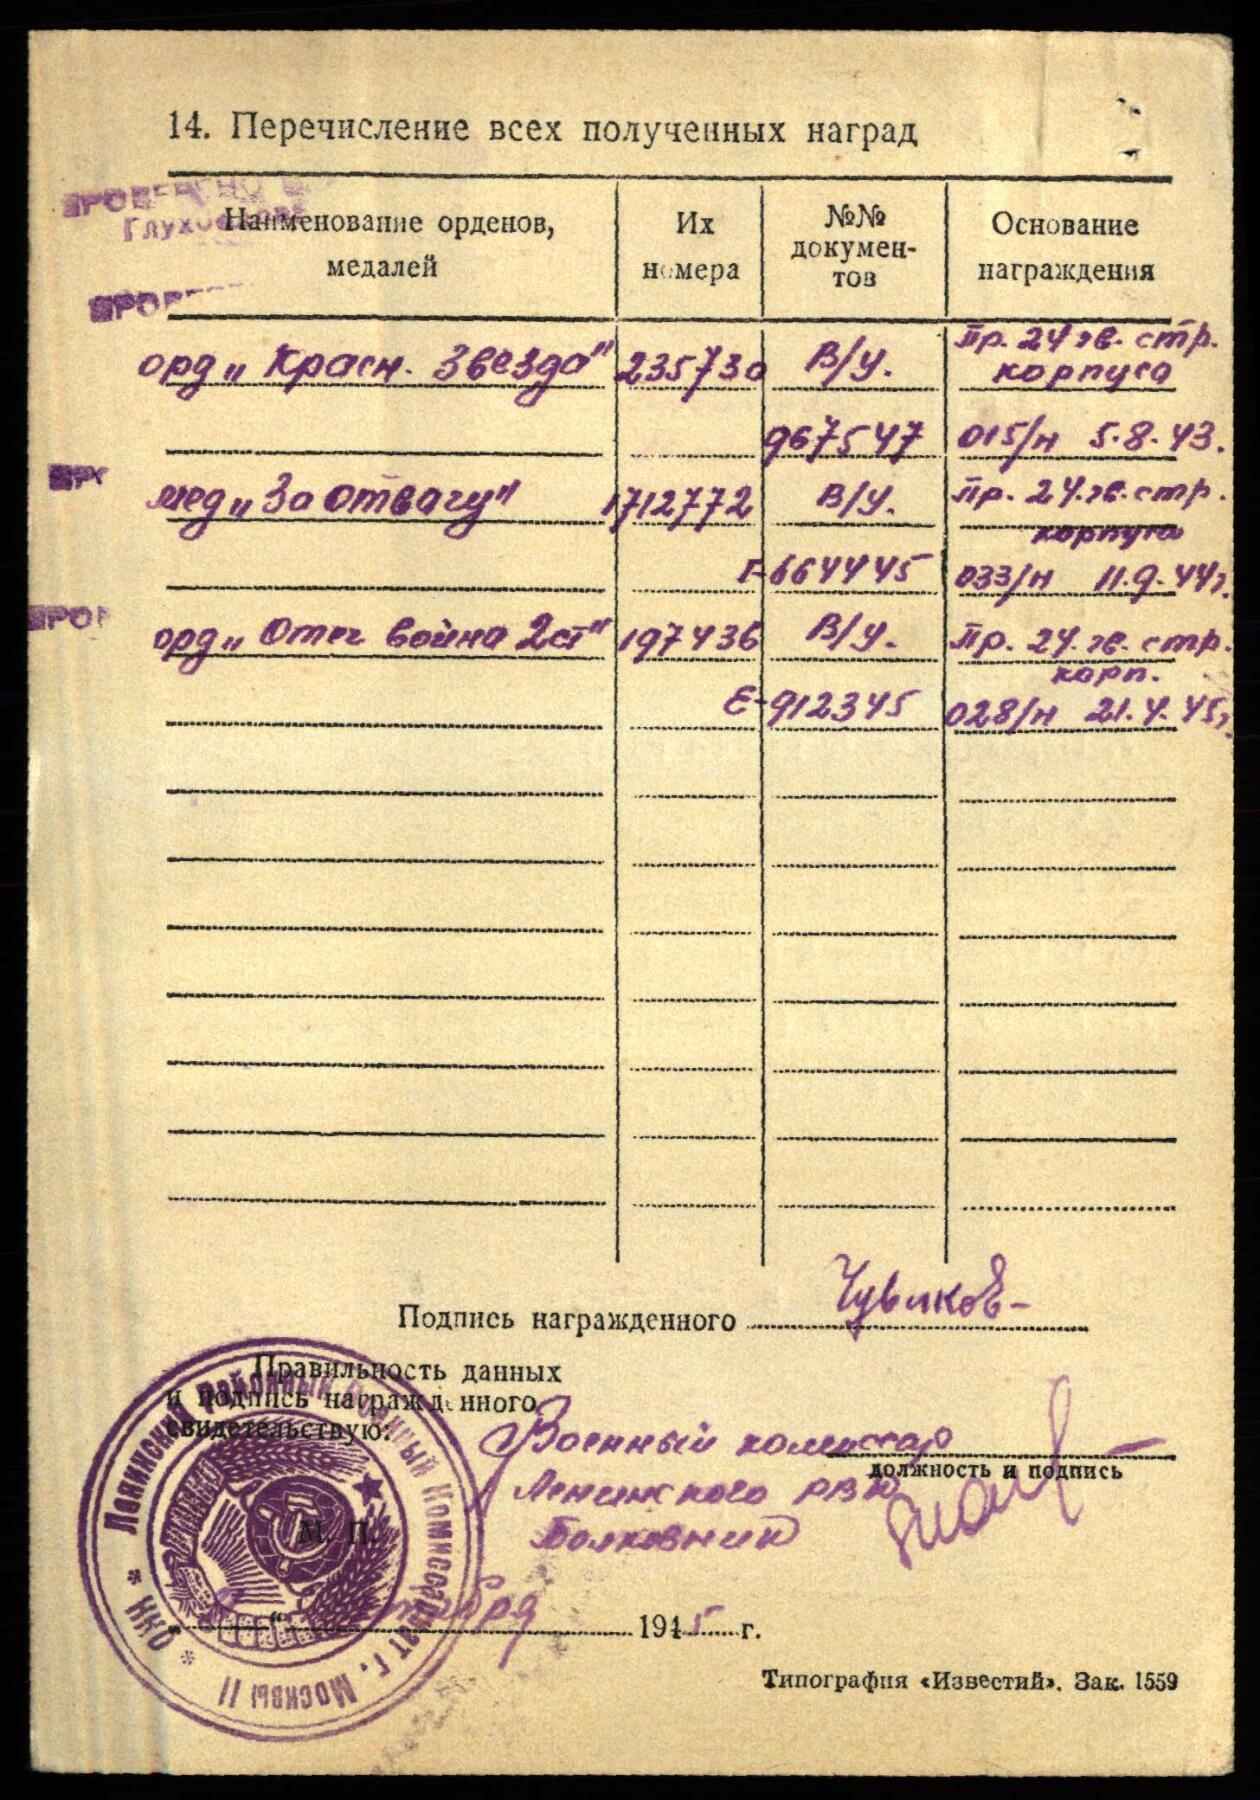 14. Перечисление всех полученных наград
Наименование орденов, медалей
Их номера
№№ документов
Основание награждения
орд „Красн. Звезда" 235730 В/у. Пр. 24 гв. стр. корпуса
967547 015/н 5.8.43.
мед „За Отвагу" 1712772 В/у. Пр. 24. гв. стр. корпуса
Г-664445 033/н 11.9.44г.
орд „Отеч война 2ст" 197436 В/у. Пр. 24. гв. стр. корп.
Е-912345 028/н 21.4.45г.
Подпись награжденного Чувиков
Правильность данных
и подпись награжденного
свидетельствую:
Военный комиссар
должность и подпись
Ленинского РВК
Полковник
М. П.
1945 г.
Типография «Известий». Зак. 1559
Ленинский Районный Военный Комиссариат г. Москвы II
* НКО *